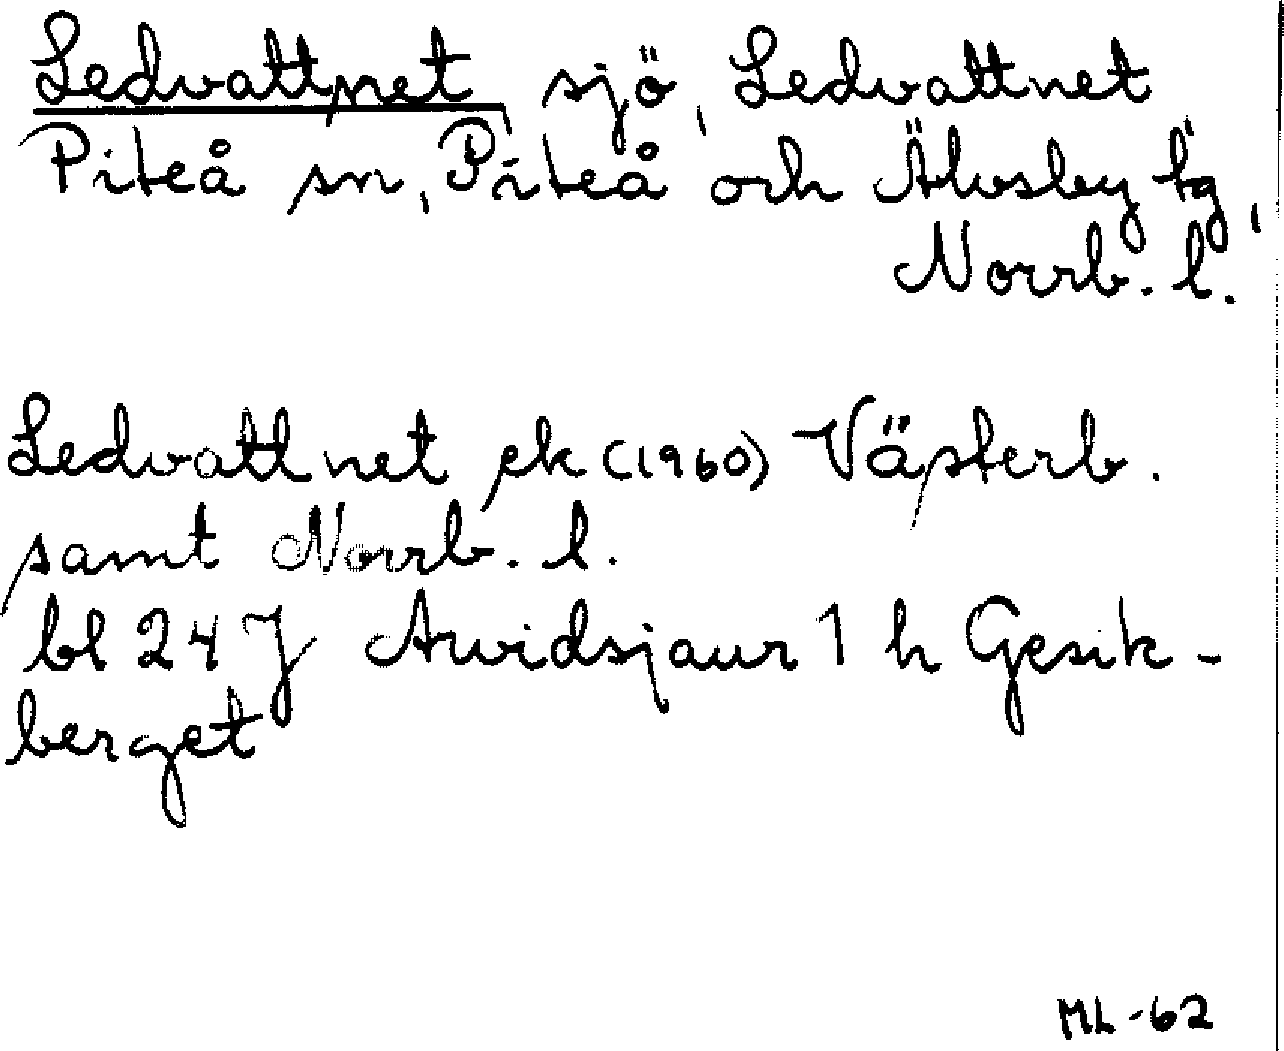 Ledvattnet, sjö, Ledvattnet
Piteå sn, Piteå och Älvsby tg,
Norrb. l.
Ledvattnet ek (1960) Västerb.
samt Norrb. l.
bl 24 J Arvidsjaur 1 h Gesik-
berget
ML -62